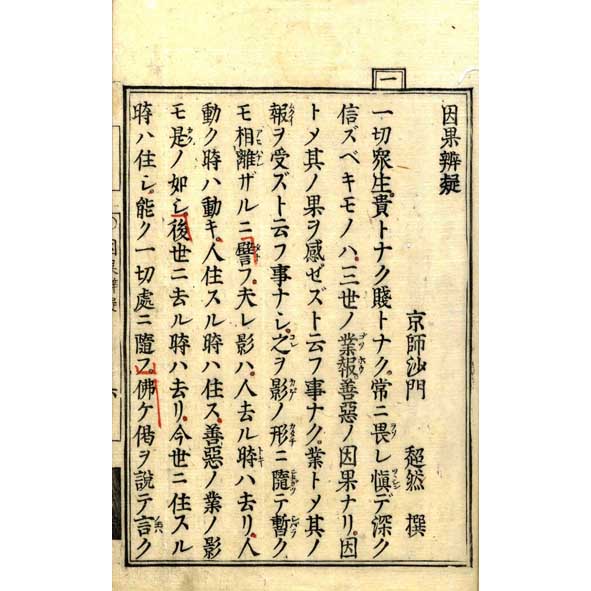 一
因果辨疑
京師沙門 超然 撰
一切衆生。貴トナク賤トナク。常ニ畏レ愼デ深ク
信ズベキモノハ。三世ノ業報。善惡ノ因果ナリ。因
トメ其ノ果ヲ感ゼズト云フ事ナク。業トメ其ノ
報ヲ受ズト云フ事ナシ。之ヲ影ノ形ニ隨テ暫ク
モ相離ザルニ譬フ。夫レ影ハ。人去ル時ハ去リ。人
動ク時ハ動キ。人住スル時ハ住ス。善惡ノ業ノ影
モ是ノ如シ。後世ニ去ル時ハ去リ。今世ニ住スル
時ハ住シ。能ク一切處ニ隨フ。佛ケ偈ヲ説テ言ク